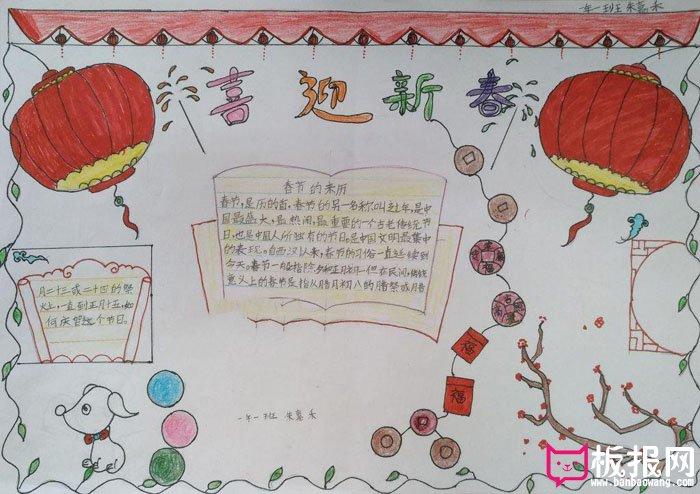 一年一班 朱嘉禾
喜迎新春
春节的来历
春节,是历的首,春节的另一名称叫过年,是中
国最盛大,最热闹,最重要的一个古老传统节
日,也是中国人所独有的节日。是中国文明最集中
的表现。自西汉以来,春节的习俗一直延续到
今天。春节一般指除夕和正月初一。但在民间,传统
意义上的春节是指从腊月初八的腊祭或腊
月二十三或二十四的祭
火上,一直到正月十五,如
何庆贺这个节日。
福
福
福
一年一班 朱嘉禾
板报网
www.banbaowang.com